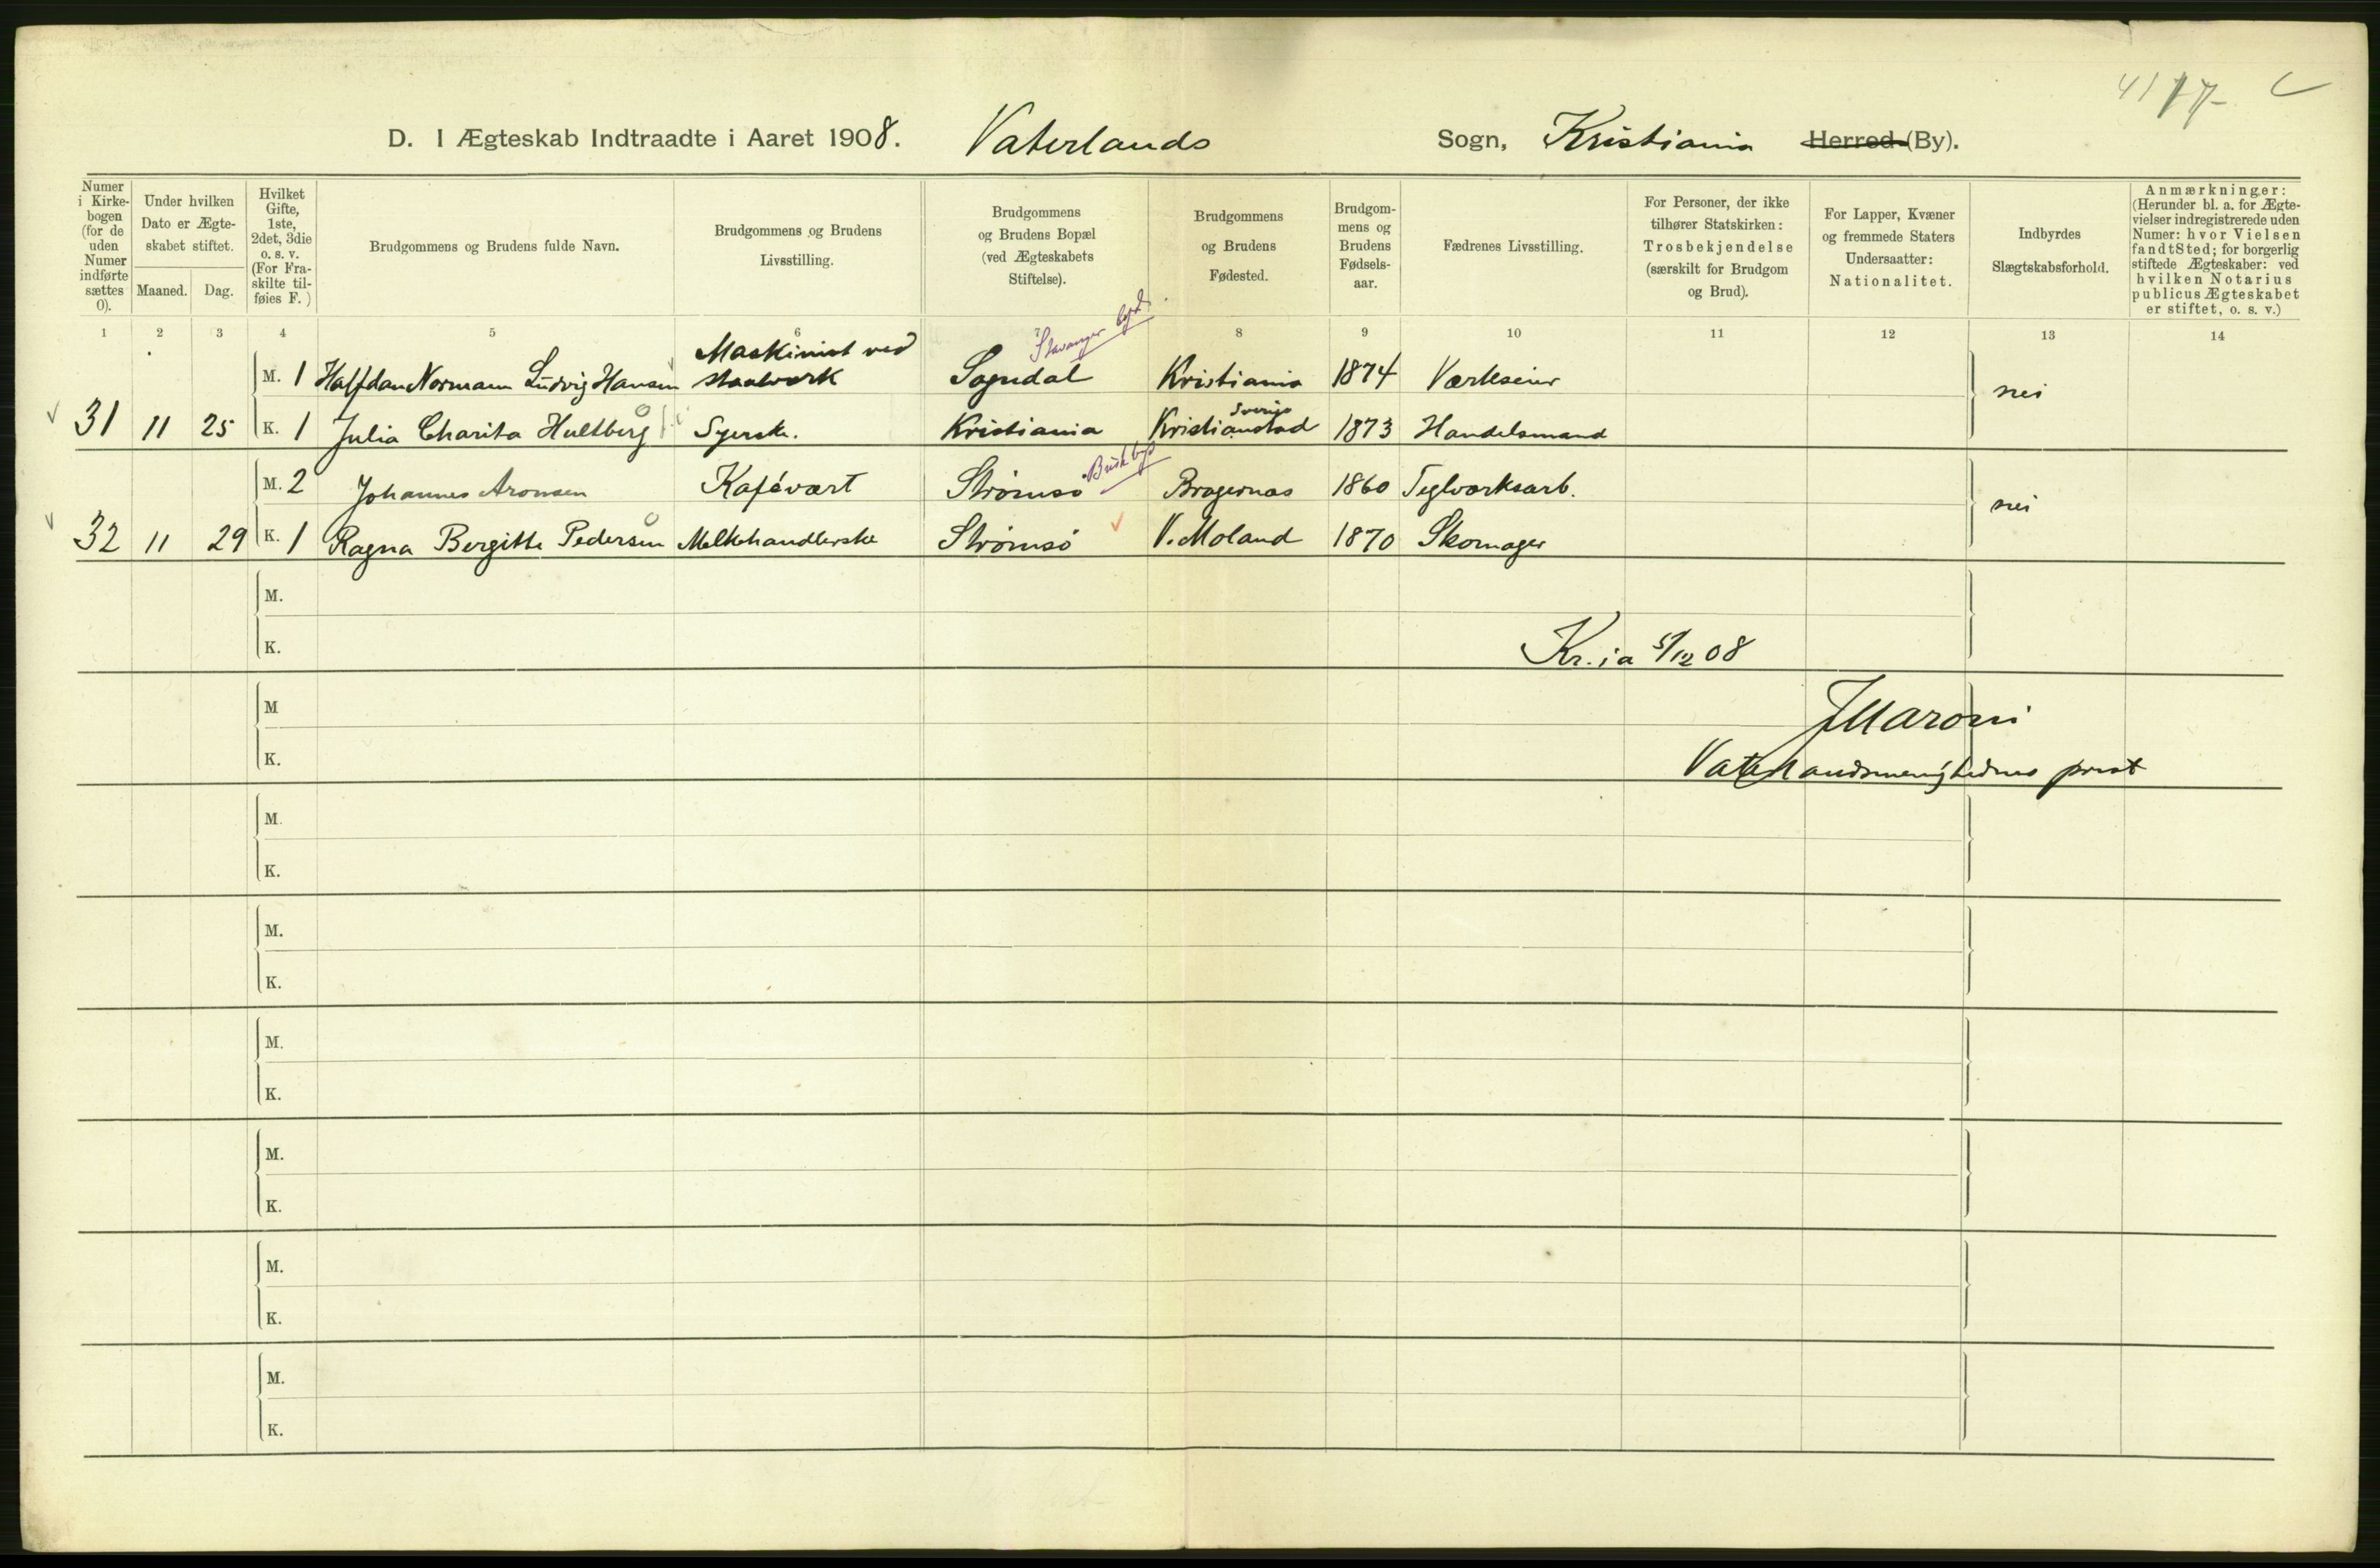 4117- C
D. I Ægteskab Indtraadte i Aaret 1908. Vaterlands Sogn, Kristiania Herred (By).
Numer i Kirke-bogen (for de uden Numer indførte sættes 0).
Under hvilken Dato er Ægte-skabet stiftet.
Maaned. Dag.
Hvilket Gifte, 1ste, 2det, 3die o. s. v. (For Fra-skilte til-føies F.)
Brudgommens og Brudens fulde Navn.
Brudgommens og Brudens Livsstilling.
Brudgommens og Brudens Bopæl (ved Ægteskabets Stiftelse).
Brudgommens og Brudens Fødested.
Brudgom-mens og Brudens Fødsels-aar.
Fædrenes Livsstilling.
For Personer, der ikke tilhører Statskirken: Trosbekjendelse (særskilt for Brudgom og Brud).
For Lapper, Kvæner og fremmede Staters Undersaatter: Nationalitet.
Indbyrdes Slægtskabsforhold.
Anmærkninger: (Herunder bl. a. for Ægte-vielser indregistrerede uden Numer: hvor Vielsen fandt Sted; for borgerlig stiftede Ægteskaber: ved hvilken Notarius publicus Ægteskabet er stiftet, o. s. v.)
1 2 3 4 5 6 7 8 9 10 11 12 13 14
Stavanger bysd.
Maskinist ved
M. 1 Halfdan Normann Ludvig Hansen staalverk Sogndal Kristiania 1874 Værkseier nei
Sverige
31 11 25 K. 1 Julia Charita Hultberg Syersk. Kristiania Kristianstad 1873 Handelsmand
M. 2 Johannes Aronsen Kafévært Strømsø Bragernæs 1860 Teglværksarb. nei
32 11 29 K. 1 Ragna Bergitte Pedersen Melkehandlerske Strømsø V. Moland 1870 Skomager
M.
K. Kr.ia 5/12 08
M JMaroni
K. Vaterlandsmenighednes prest
M.
K.
M.
K.
M.
K.
M.
K.
M.
K.
M.
K.